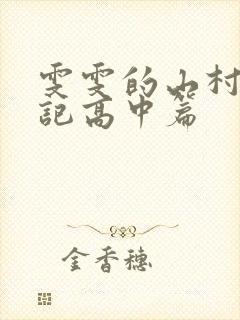 雯雯的山村
记高中篇
金香穗